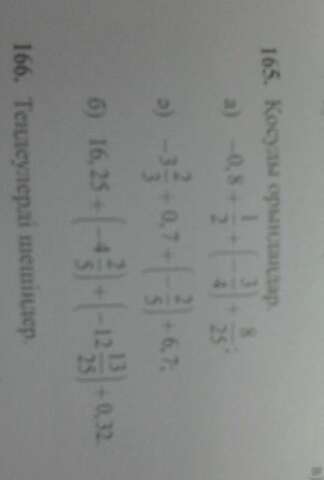 165. Қосуды орындаңдар.
а) −0,8 + 1/2 + (−3/4) + 8/25;
ә) −3 2/3 + 0,7 + (−2/5) + 6,7;
б) 16,25 + (−4 2/5) + (−12 13/25) + 0,32.
166. Теңдеулерді шешіңдер.